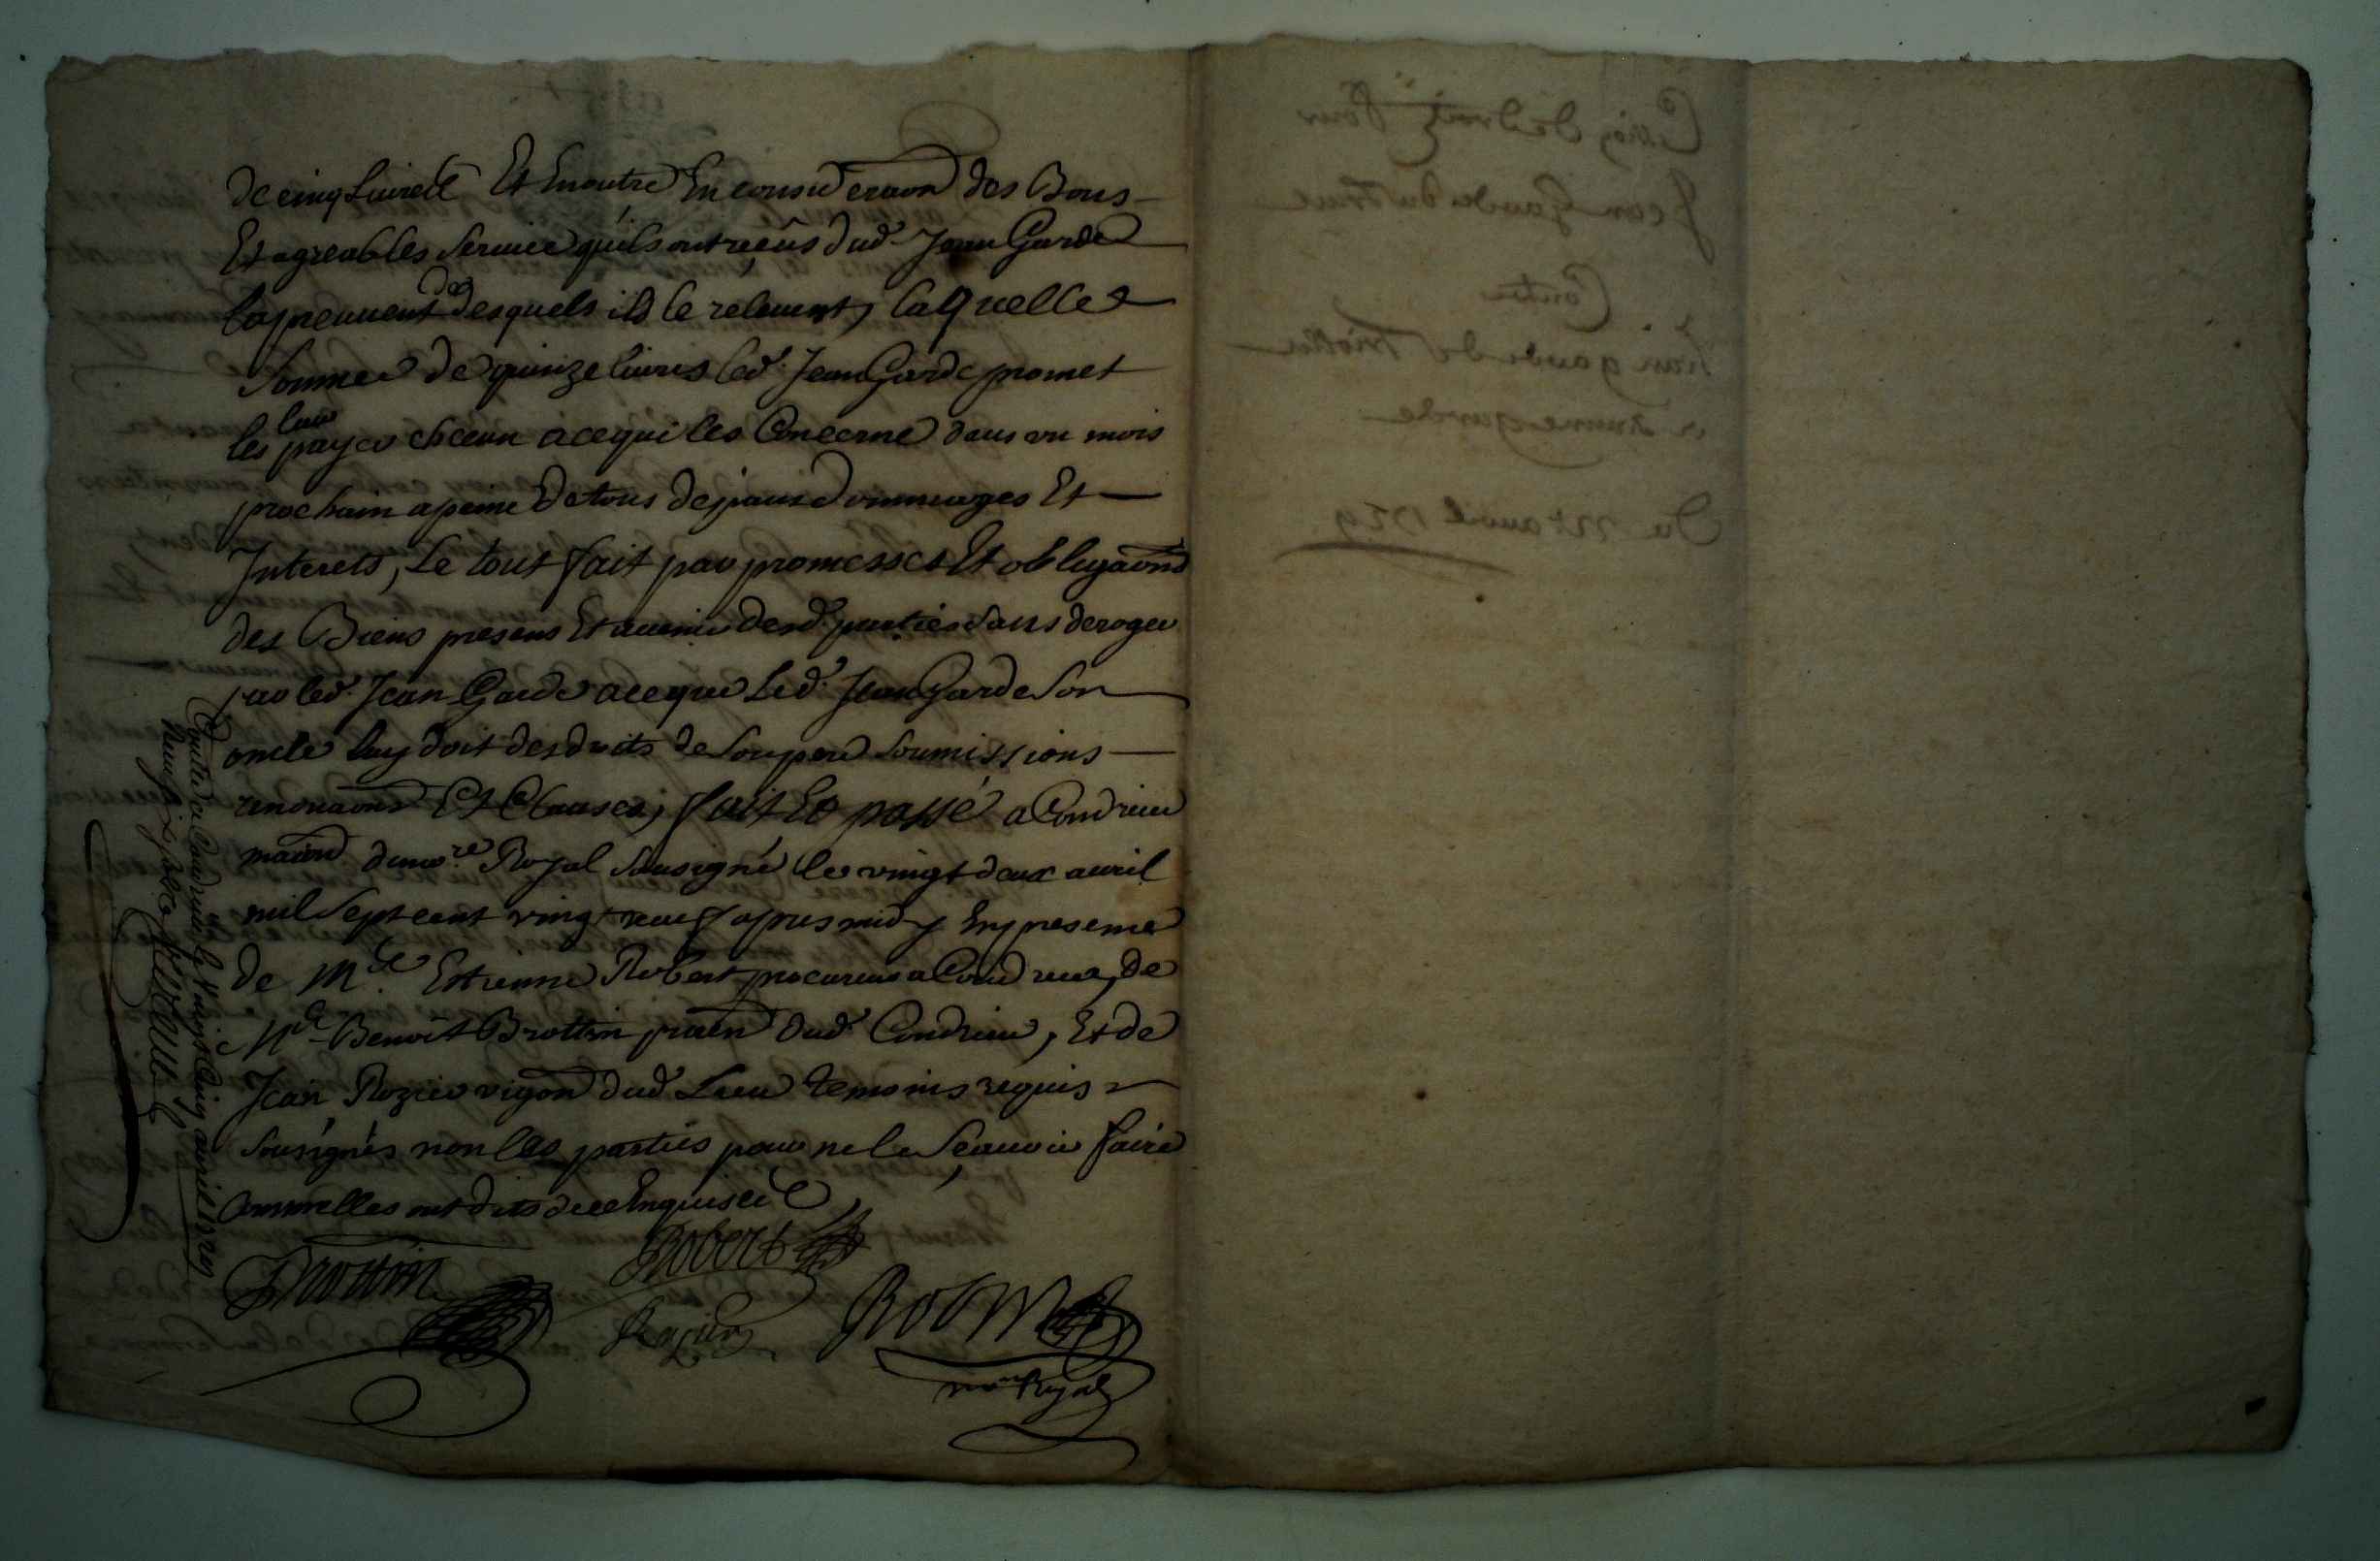 de cinq livres Et En outre En consideraon des Bons
Et agreables service qu'ils ont reçûs dud. Jean Garde
la preuvent des desquels ils le relevent, laquelle
somme de quinze livres led. Jean Garde promet
les leur payer chacun a ce qui les Concerne dans un mois
prochain a peine de tous depans dommages Et
Interets, Le tout fait par promesses Et obligaons
des Biens presens Et avenir desd. parties sans deroger
par led. Jean Garde a ce que Led. Jean Garde son
oncle luy doit des droits de son pere soumissions
renonaons Et Clauses, fait Et passé a Condrieu
maison du nore Royal sousigné le vingt deux avril
mil sept cent vingt neuf apres midy En presence
de Me. Estienne Robert procureur a Condrieu, de
Me. Benoît Brottin praen dud. Condrieu, Et de
Jean Rozier vigon dud. Lieu temoins requis
sousignés non les parties pour ne le sçavoir faire
comme elles ont dit de ce Enquises
Brottin
Robert
Rozier
nore Royal
Controllé a Condrieu le vingt cinq avril 1729
Jean Garde
Contre
Jean garde
garde
Du 22e avril 1729